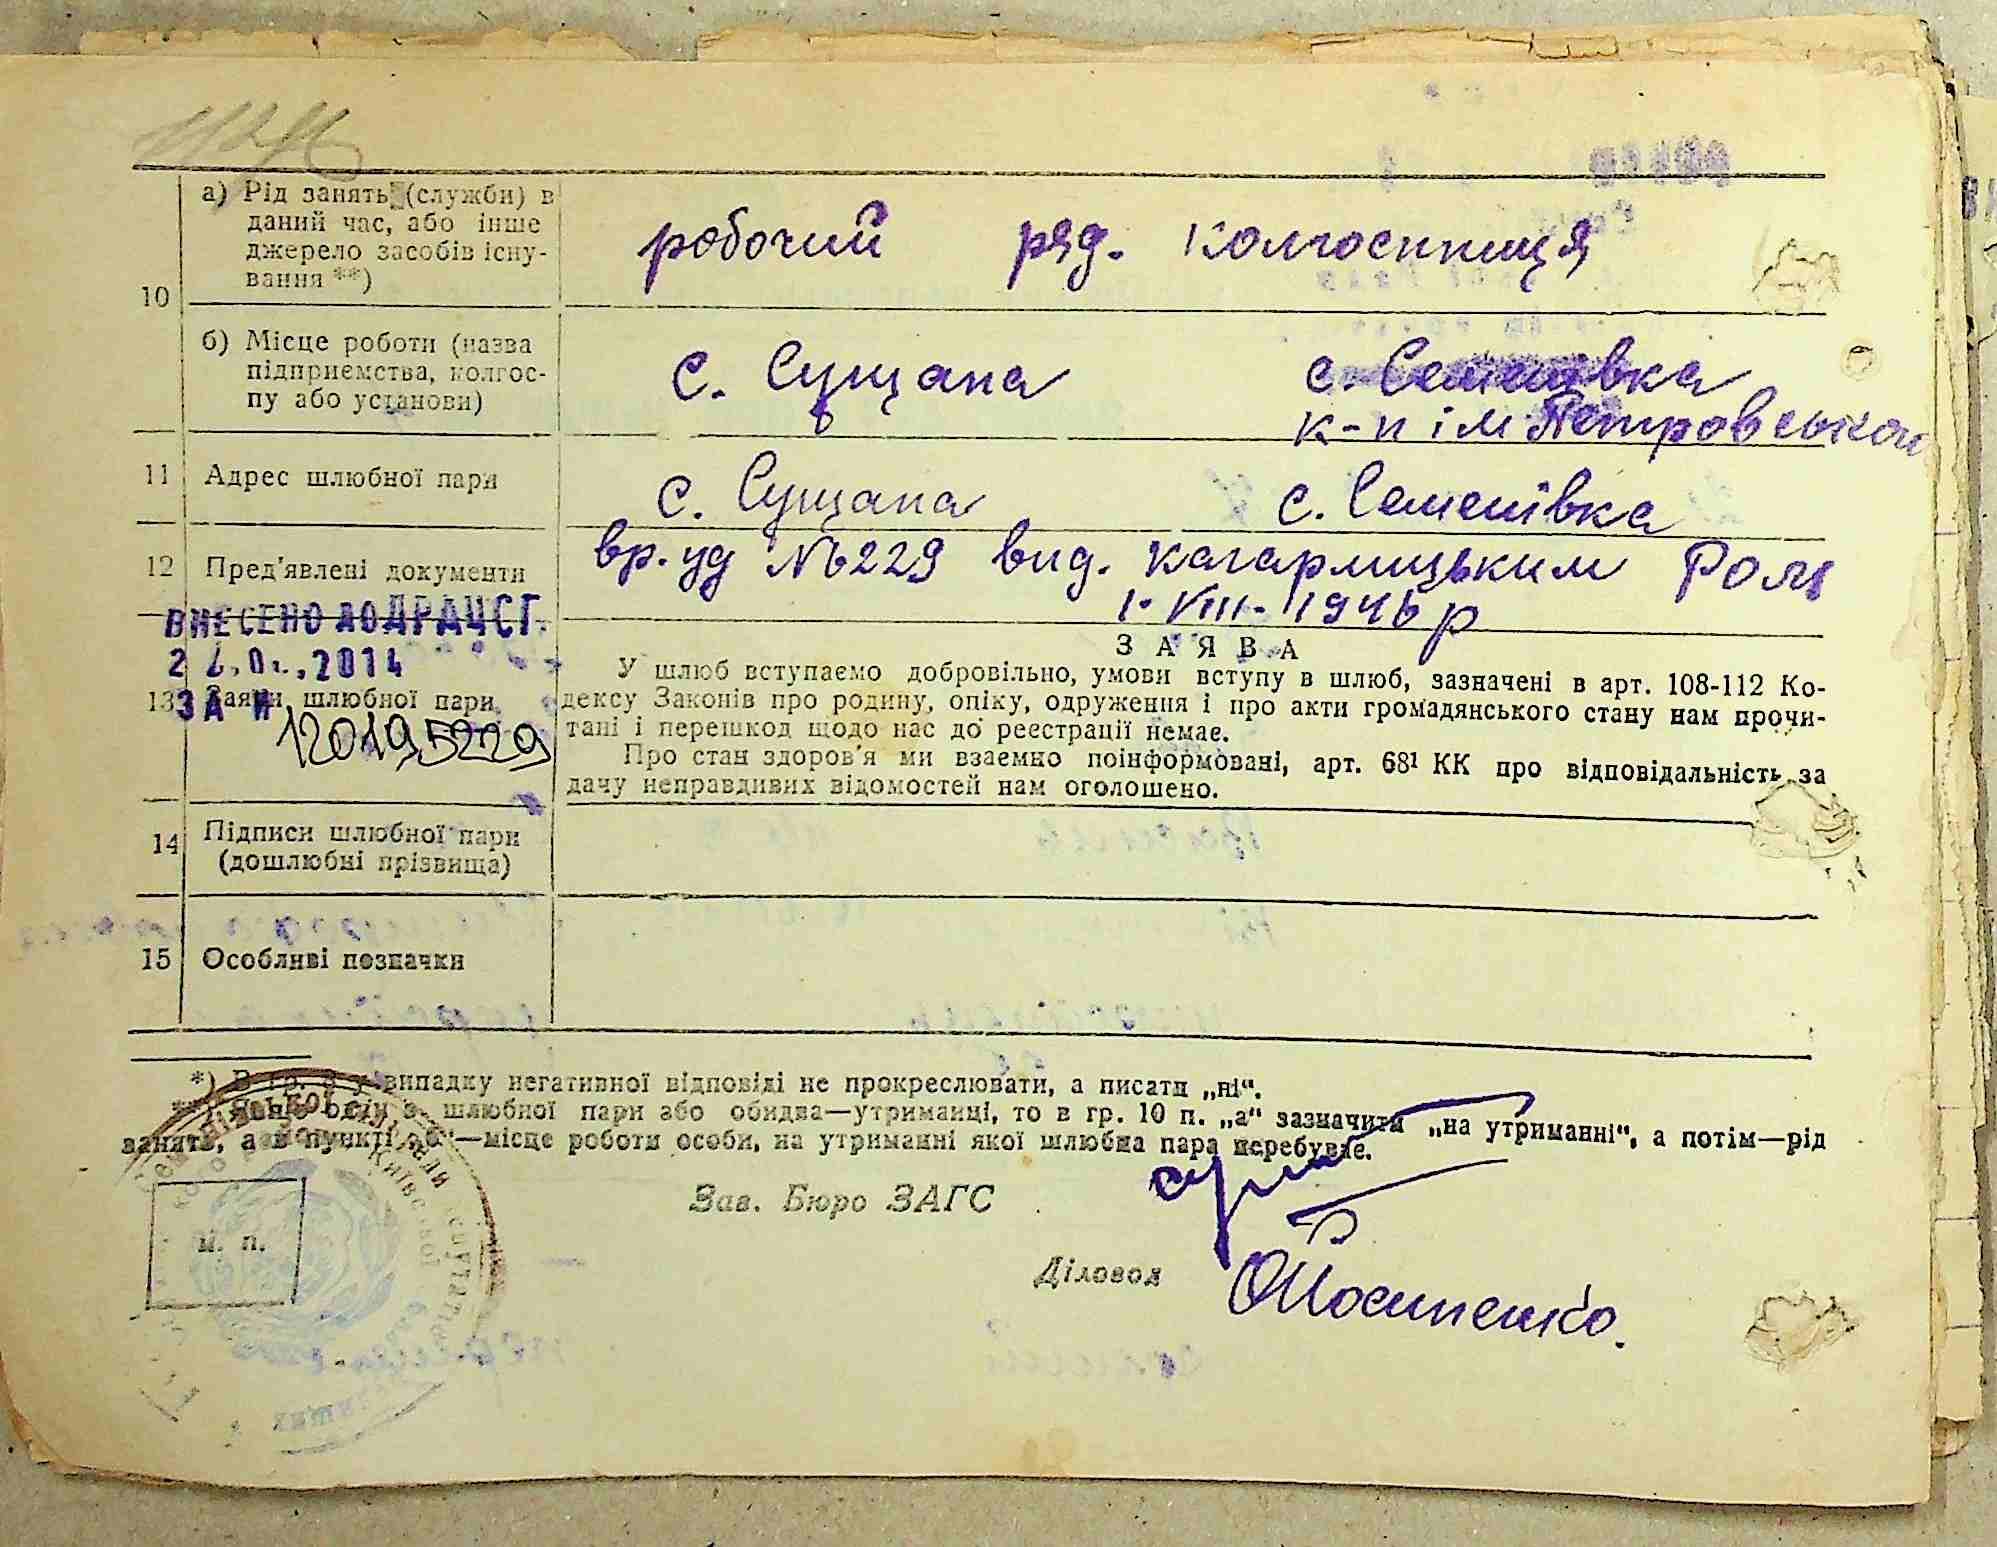 10
а) Рід занять (служби) в
даний час, або інше
джерело засобів існу-
вання **)
робочий ряд. колгоспниця
б) Місце роботи (назва
підприємства, колгос-
пу або установи)
с. Сущана с. Семенівка
к-п ім Петровського
11 Адрес шлюбної пари
с. Сущана с. Семенівка
12 Пред'явлені документи
вр. уд №229 вид. Кагарлицьким Ром
1. VIII. 1946 р
ВНЕСЕНО ДО ДРАЦСГ
2014
ЗА №
120195229
13 Заяви шлюбної пари
ЗАЯВА
У шлюб вступаємо добровільно, умови вступу в шлюб, зазначені в арт. 108-112 Ко-
дексу Законів про родину, опіку, одруження і про акти громадянського стану нам прочи-
тані і перешкод щодо нас до реєстрації немає.
Про стан здоров'я ми взаємно поінформовані, арт. 68¹ КК про відповідальність за
дачу неправдивих відомостей нам оголошено.
14 Підписи шлюбної пари
(дошлюбні прізвища)
15 Особливі позначки
*) В гр. 8 у випадку негативної відповіді не прокреслювати, а писати „ні“.
**) Якщо один з шлюбної пари або обидва—утриманці, то в гр. 10 п. „а“ зазначити „на утриманні“, а потім—рід
занять, а в пункті „б“—місце роботи особи, на утриманні якої шлюбна пара перебуває.
Зав. Бюро ЗАГС
м. п.
Діловод
О Йосипенко.